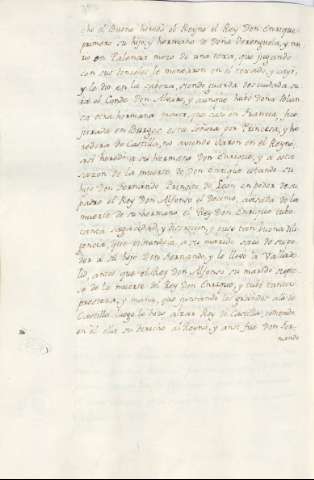 cho el Bueno heredò el Reyno el Rey Don Enrique
primero su hijo, y hermano de Doña Berenguela, y mu
rio en Palencia mozo de una texa, que jugando
con sus donceles le menearon en el texado, y cayò,
y le dio en la cabeza, siendo guarda de cuidada su
ia el Conde Don Alvaro, y aunque hubo Doña Blan
ca otra hermana mayor, que casò en Francia, fue
jurada en Burgos esta Señora por Princesa, y he
redera de Castilla, no aviendo Varon en el Reyno,
asi heredò a su hermano Don Enrique, y a esta
sazon de la muerte de Don Enrique estando su
hijo Don Hernando Principe de Leon en poder de su
padre el Rey Don Alfonso el Decimo, avisada de la
muerte de su hermano el Rey Don Enrique tubo
tanta sagacidad, y discrecion, y puso tan buena dili
gencia, que a su marido saco de su po
der a su hijo Don Fernando, y le llevò a Vallado
lid, antes que el Rey Don Alfonso su marido supie
se de la muerte del Rey Don Enrique, y tubo tanta
presteza, y maña, que juntando los grandes de
Castilla luego le hizo alzar Rey de Castilla, renuncian
en èl ella su derecho al Reyno, y ansi fue Don Fer-
nando